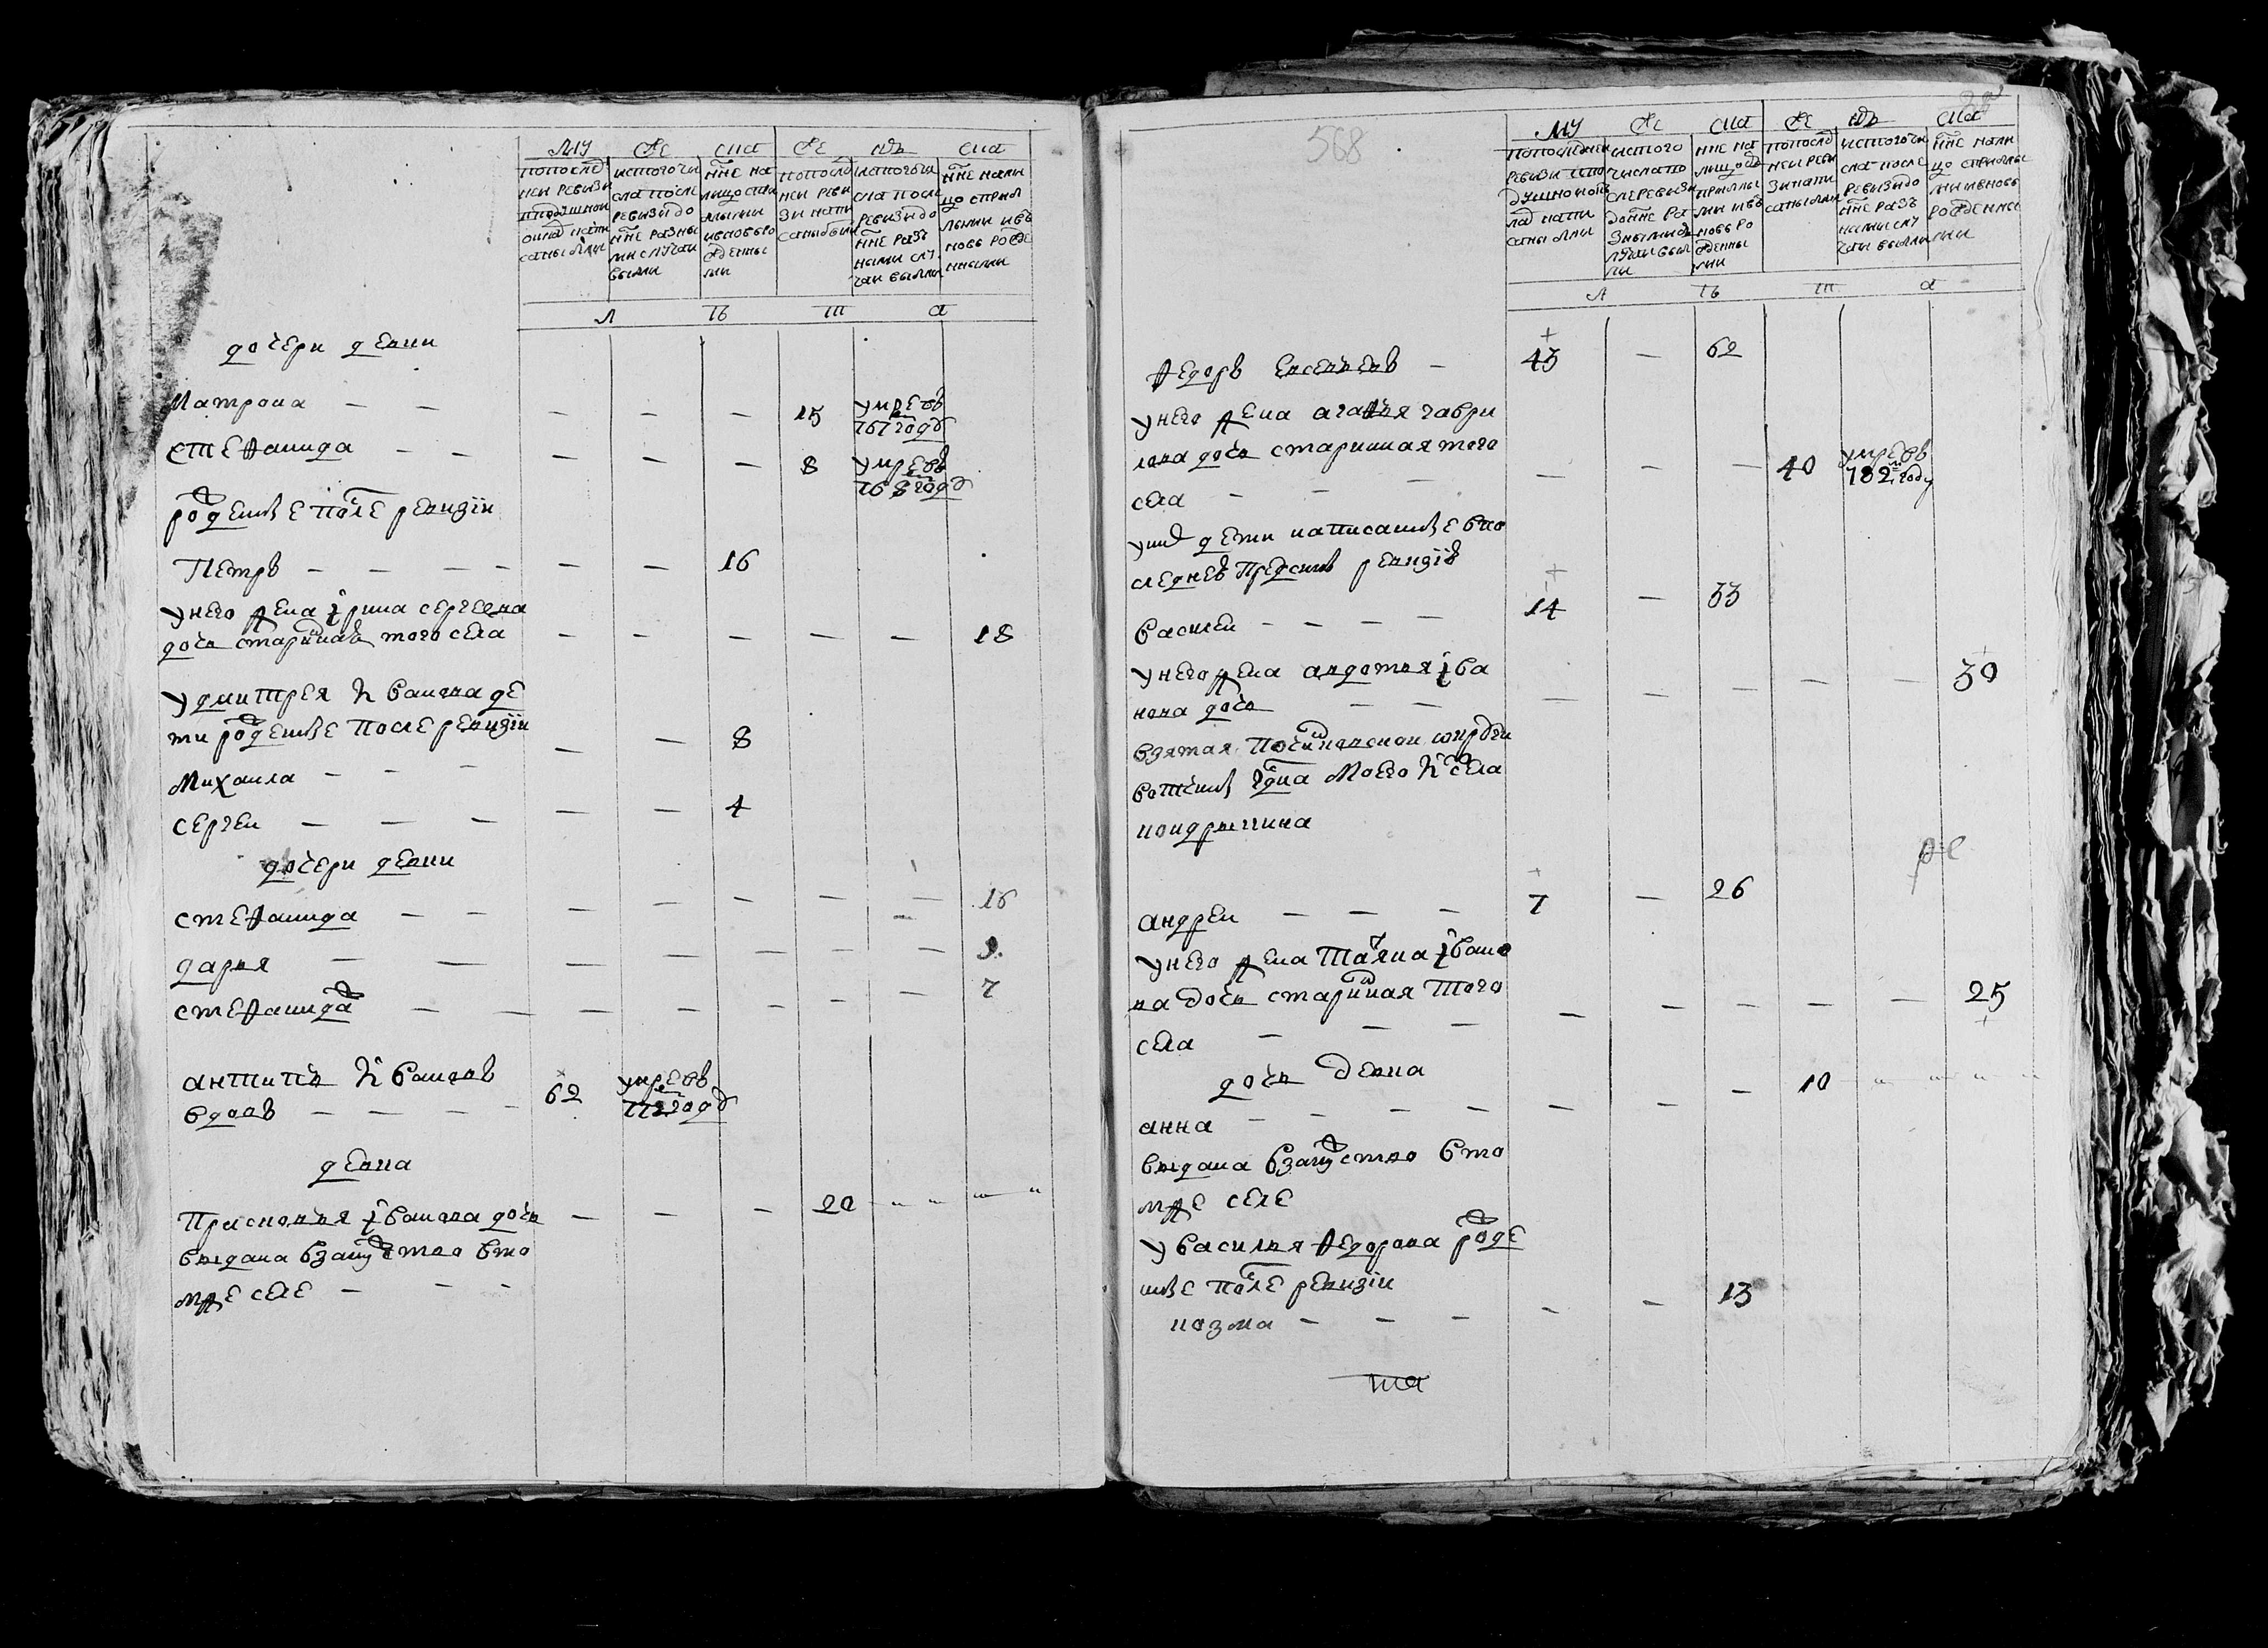 МУ ЖС СКА ЖЕ НЪ СКА
попослѣд
ней ревизи
вподушной
оклад напи
саны были
исtого чи
сла после
ревизiи до
нне разны
ми случаи
выбыли
нне на
лицо съпри
былыми
ивновьро
жденны
ми
попослѣ
ней реви
зи напи
саны были
истого чи
сла после
ревизiи до
нне разъ
ными слу
чаи выбыли
нне нали
цо съприбы
лыми ивъ
новь рожде
нными
л ѣ т а
дочери девки
Матрона — — — — — 15 умре въ
767 годѣ
степанида — — — — — 8 умре въ
768 годѣ
рожденые после ревизiи
Петръ — — — — — — 16
унего жена iрина сергеева
дочь старинная того села — — — — — 18
удмитрея Iванова де
ти рожденые после ревизiи
Михаила — — — — — 8
сергеи — — — — — 4
дочери девки
степанида — — — — — — — 16
дарья — — — — — — — 9
степанида — — — — — — — 7
антипъ Iвановъ
вдовъ — — — — 62 умре въ
772 годѣ
девка
Прасковья iванова дочь — — — 20
выдана взамужство вто
мже селе — — —
568
МУ ЖС СКА ЖЕ НЪ СКА
попоследней
ревизи впо
душной ок
лад напи
саны были
истого
числа по
слеревизи
донне ра
зными с
лучаи выбы
ли
нне на
лицо съ
прибылы
ми ивъ
новь ро
жденны
ми
попослѣд
ней реви
зи напи
саны были
истого чи
сла после
ревизiи до
нне разъ
ными слу
чаи выбыли
нне нали
цо съприбылы
ми ивновь
рожденны
ми
л ѣ т а
Федоръ Евсевьевъ — 43 — 62
унего жена агафья гаври
лова дочь старинная того
села — — — — — — 40 умре въ
782м году
унихъ дети написаные впо
следней пред сим ревизiи
василеи — — — — 14 — 33
унего жена авдотья iва
нова дочь — — — — — — — 30
взятая
вотчины моего села
кондрыкина
андреи — — — 7 — 26
унего жена Татьяна iвано
ва дочь старинная того
села — — — — — — — — 25
дочь девка
анна — — — — — — — 10
выдана взамужство вто
мже селе
увасилья Федорова рожде
ные после ревизiи
козма — — — — — 13